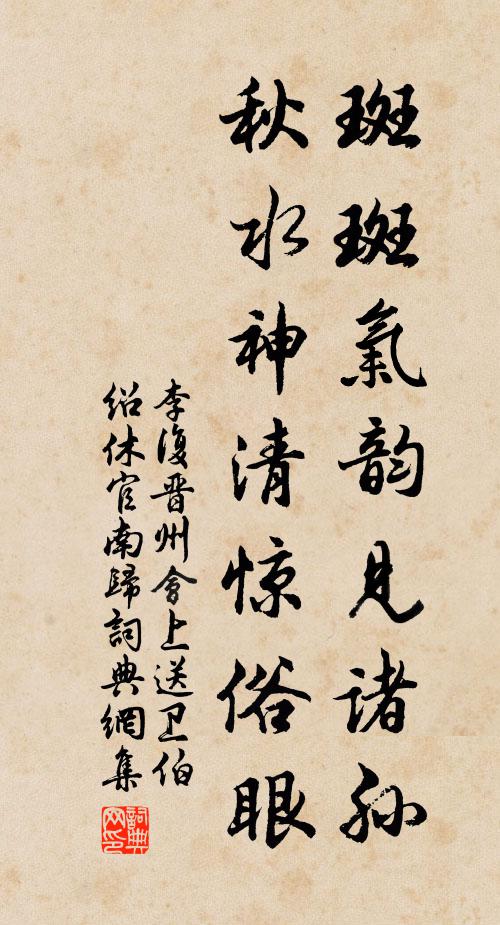 斑斑氣韵見諸孙
秋水神清惊俗眼
李復晋州會上送卫伯
绍休官南歸詞典網集
詞典网印